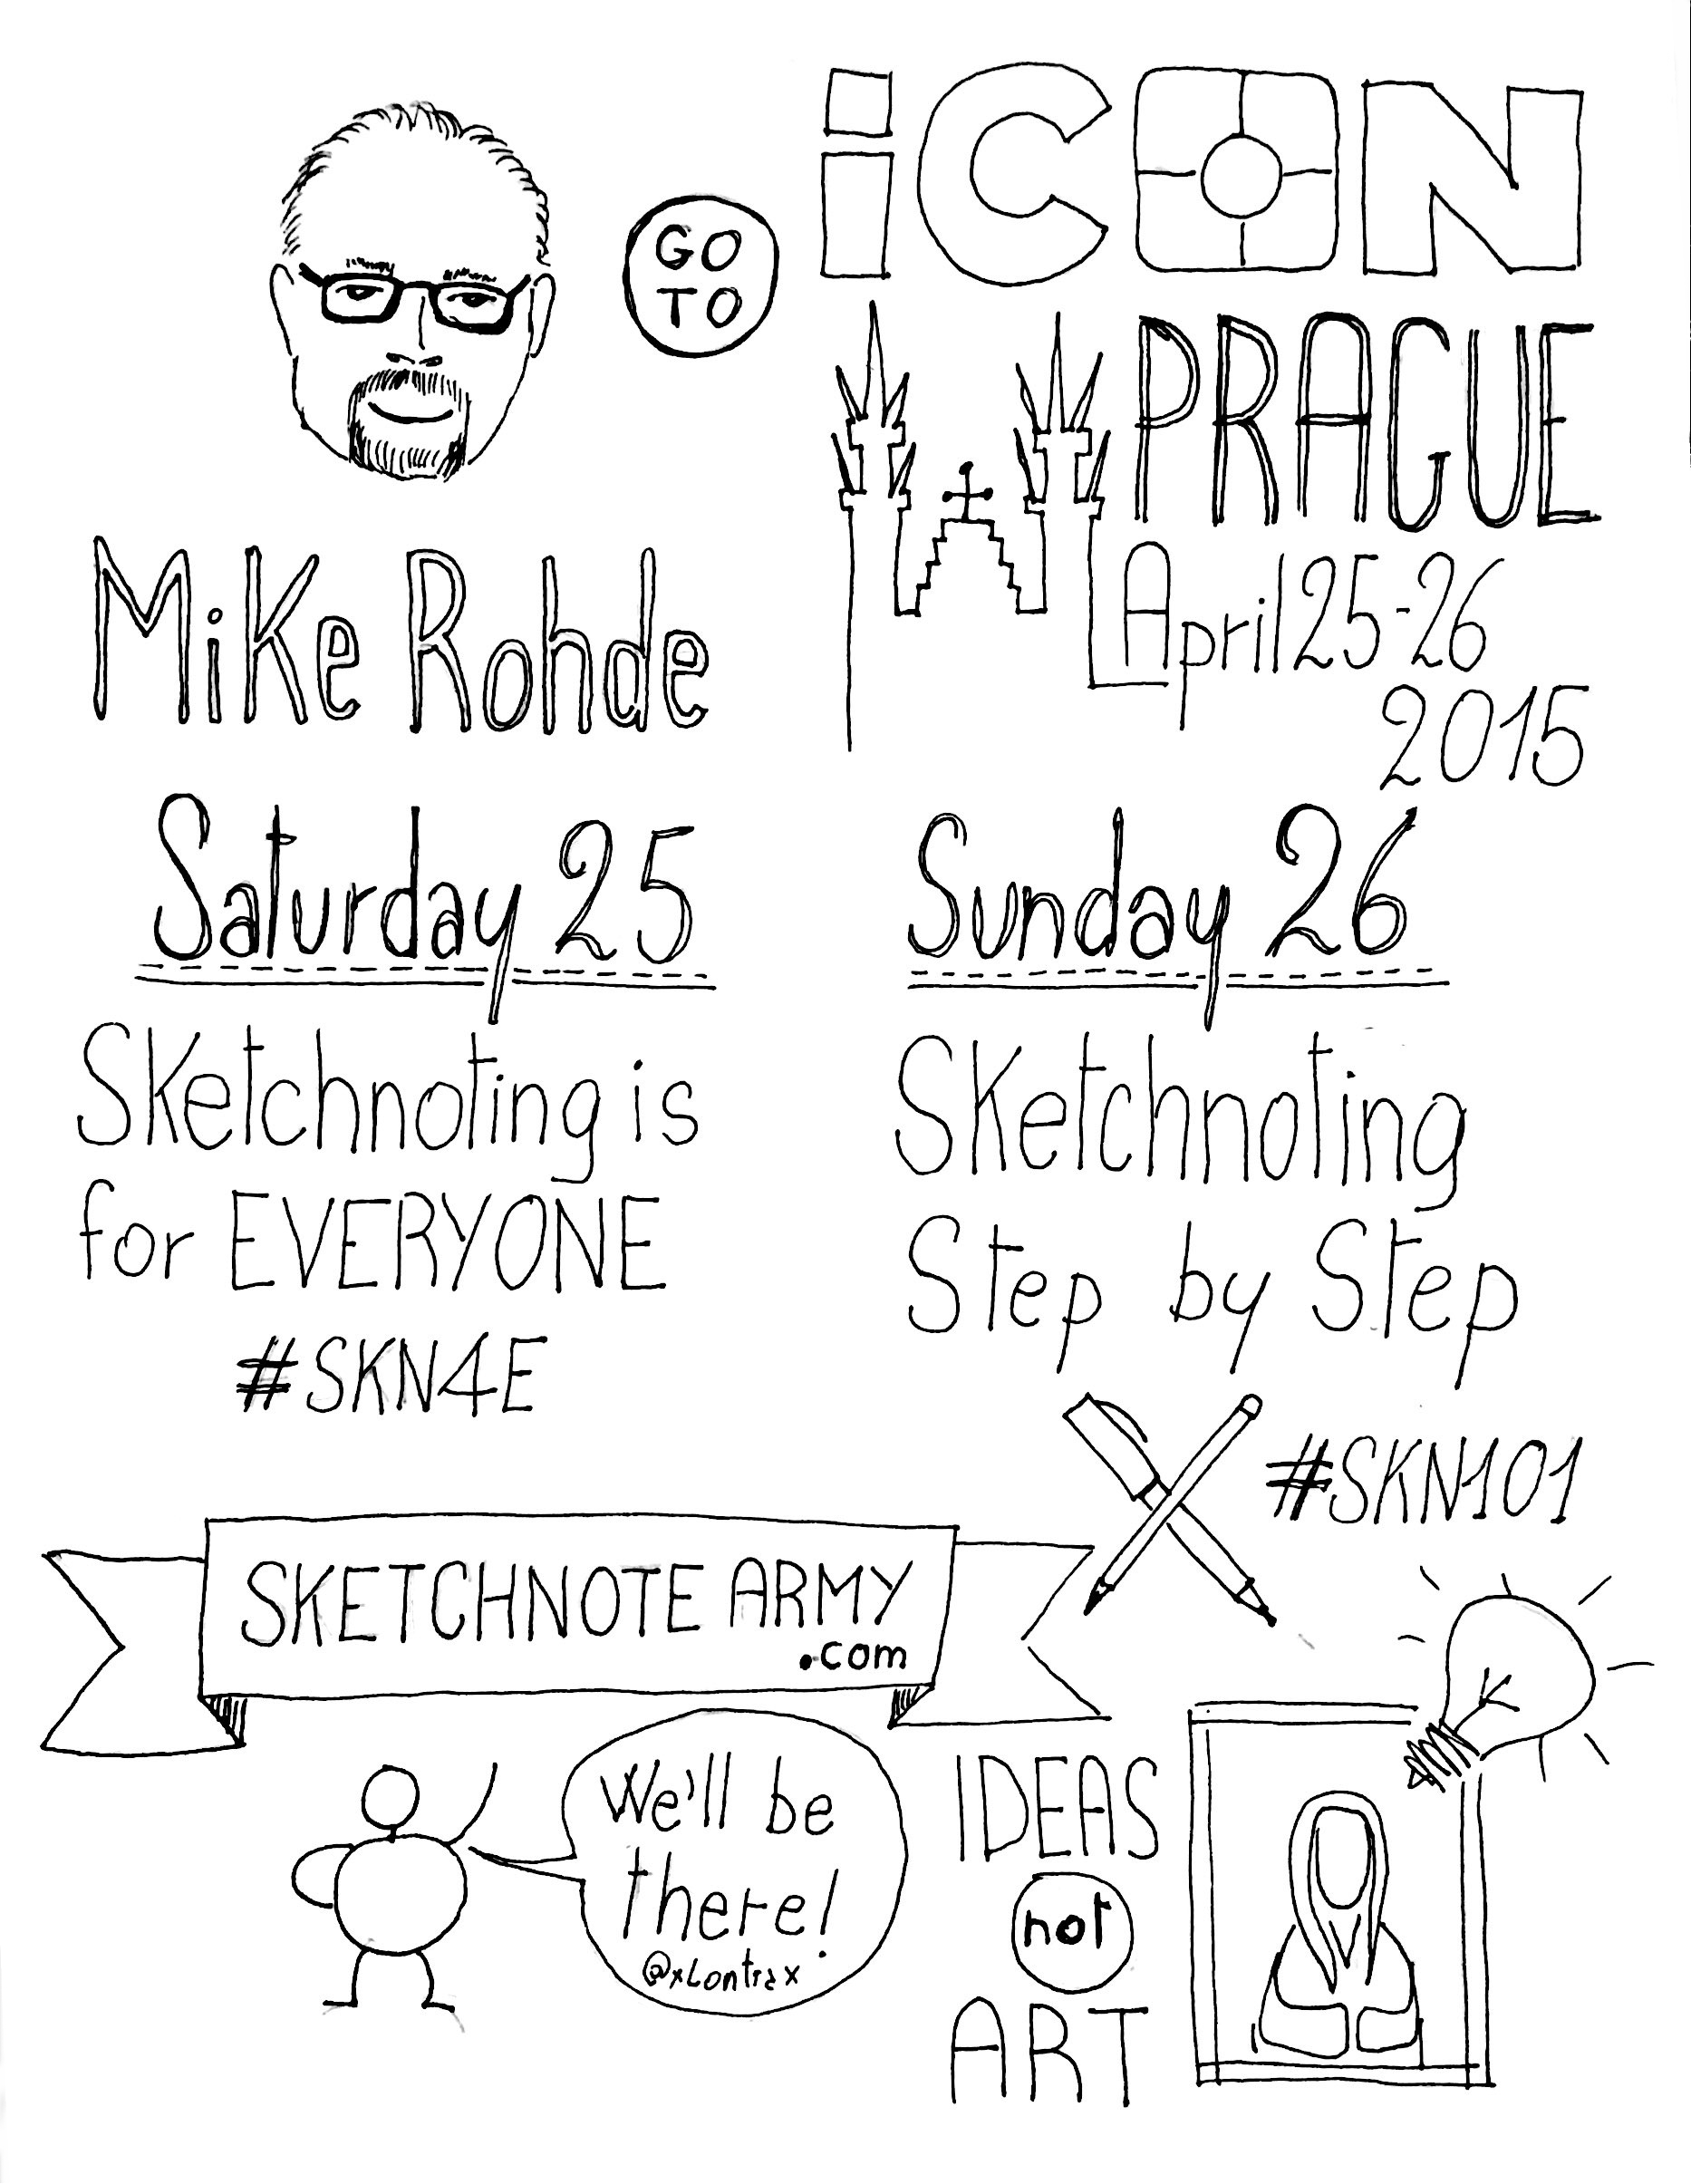 GO
TO
iCON
PRAGUE
April 25-26
2015
Mike Rohde
Saturday 25
Sketchnoting is
for EVERYONE
#SKN4E
Sunday 26
Sketchnoting
Step by Step
#SKN101
SKETCHNOTE ARMY
.com
We'll be
there!
@xLontrax
IDEAS
not
ART